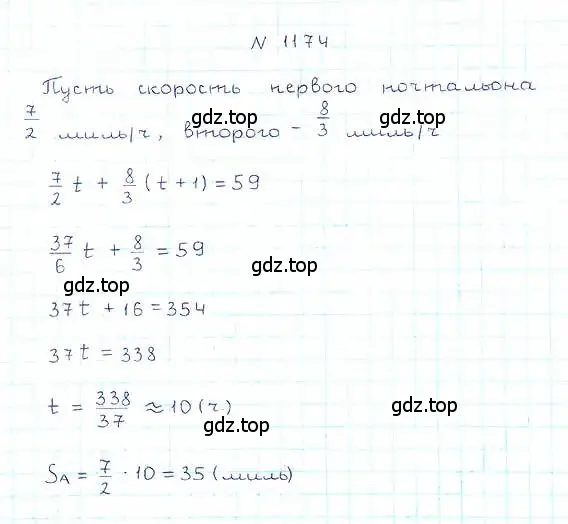 N 1174
Пусть скорость первого почтальона
7/2 миль/ч, второго - 8/3 миль/ч
gdz.top
gdz.top
7/2 t + 8/3 (t + 1) = 59
37/6 t + 8/3 = 59
gdz.top
gdz.top
37t + 16 = 354
37t = 338
t = 338/37 ≈ 10 (ч)
gdz.top
gdz.top
S_A = 7/2 · 10 = 35 (миль)